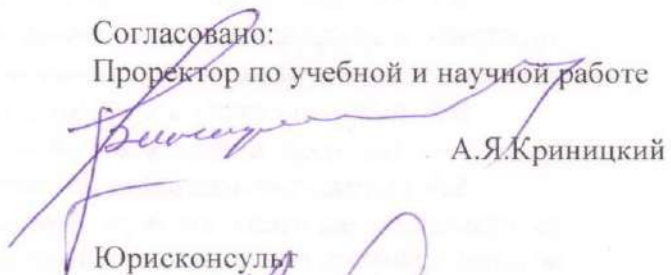 Согласовано:
Проректор по учебной и научной работе
А.Я.Криницкий
Юрисконсульт